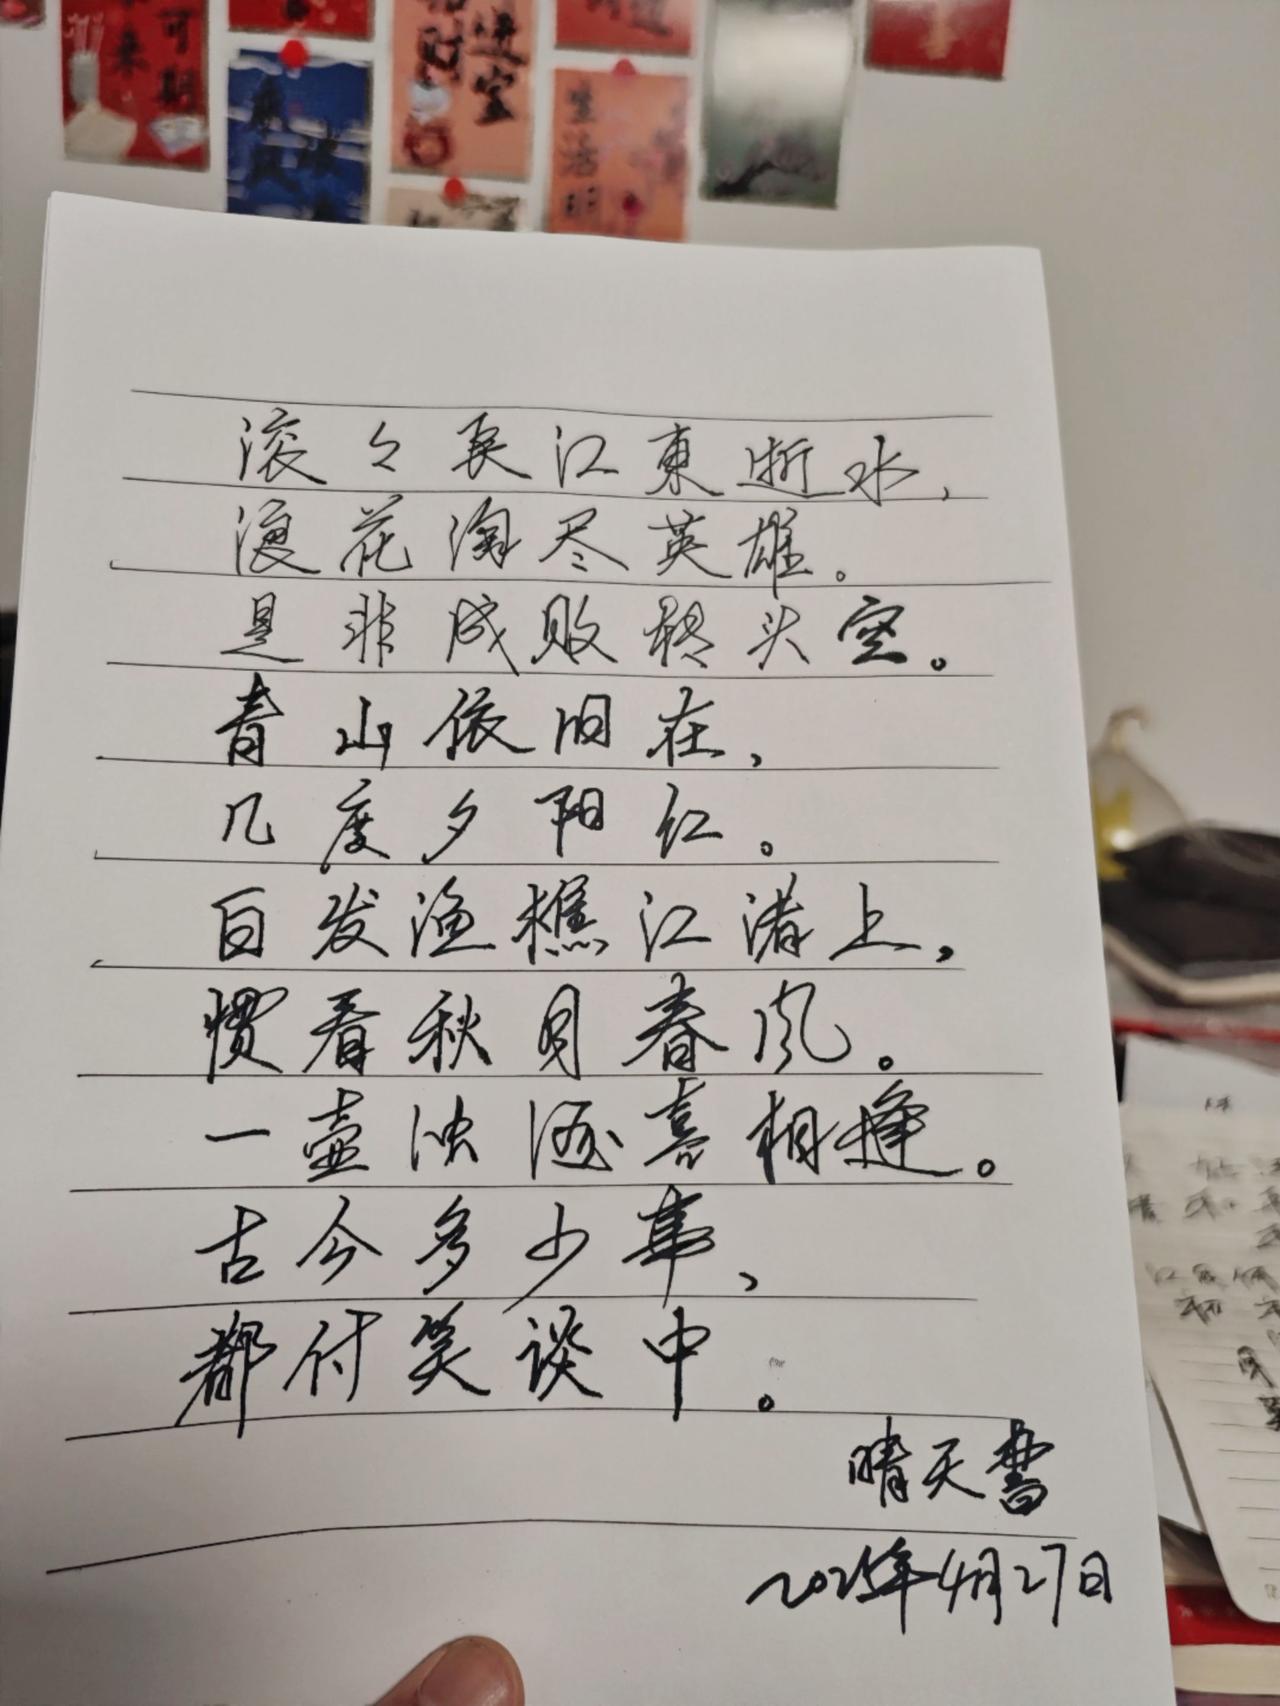 可期
来
财
进宝
生活明
滚々長江東逝水，
浪花淘尽英雄。
是非成败转头空。
青山依旧在，
几度夕阳红。
白发渔樵江渚上，
惯看秋月春风。
一壶浊酒喜相逢。
古今多少事，
都付笑谈中。
晴天书
2025年4月27日